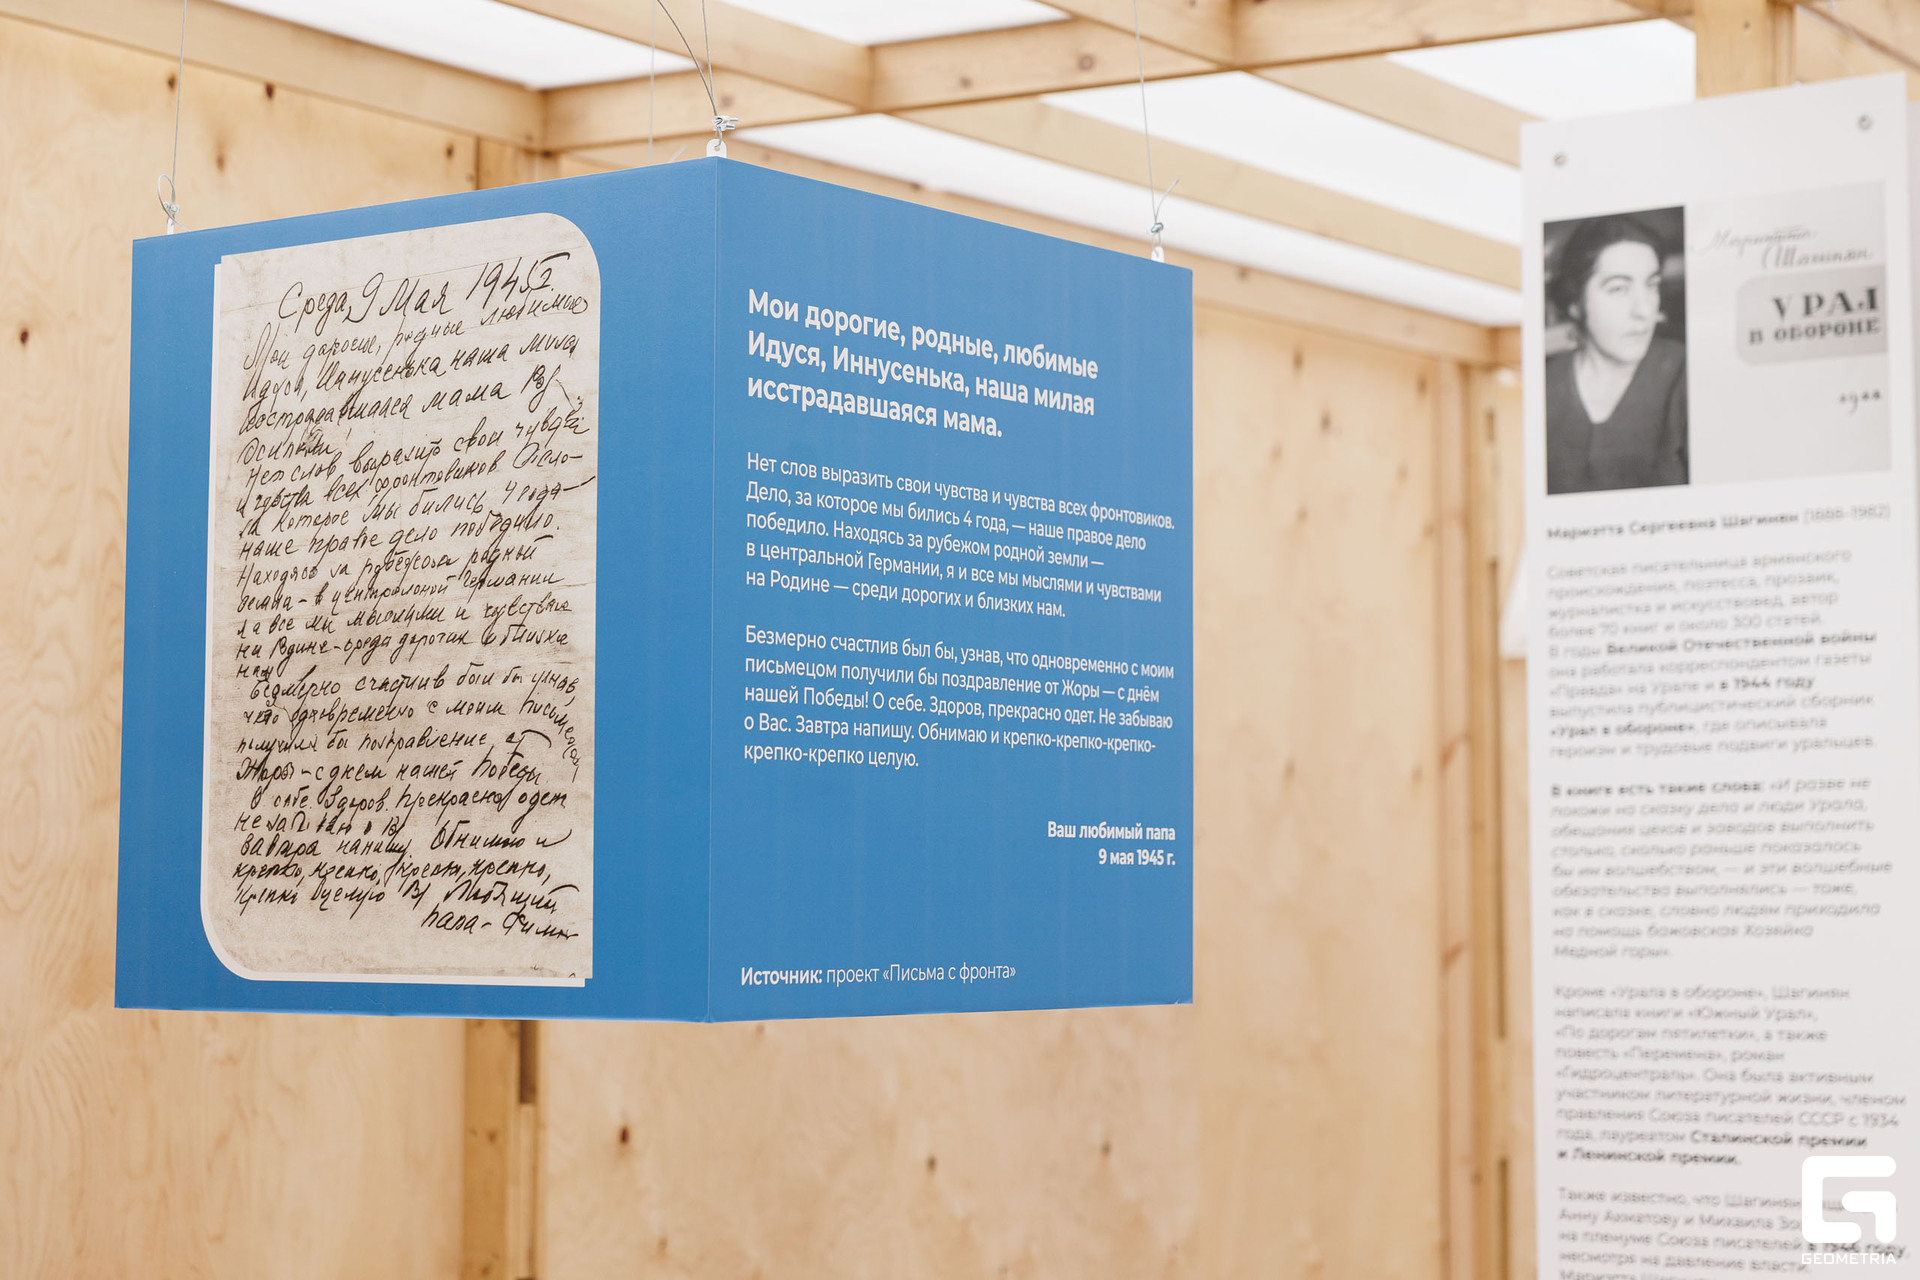 Среда, 9 Мая 1945 г.
Мои дорогие, родные любимые
Идуся, Иннусенька наша милая
исстрадавшаяся мама
Нет слов выразить свои чувства
и чувства всех фронтовиков Дело-
за которое мы бились 4 года-
наше правое дело победило.
Находясь за рубежом родной
земли - в центральной Германии
я и все мы мыслями и чувствами
на Родине - среди дорогих и близких
нам
Безмерно счастлив был бы узнав,
что одновременно с моим письмецом
получили бы поздравление от
Жоры - с днем нашей Победы.
О себе. Здоров. Прекрасно одет
Не забываю о Вас. Обнимаю и
Завтра напишу.
крепко, крепко, крепко, крепко,
крепко целую Вас Любящий
папа -
Мои дорогие, родные, любимые
Идуся, Иннусенька, наша милая
исстрадавшаяся мама.
Нет слов выразить свои чувства и чувства всех фронтовиков.
Дело, за которое мы бились 4 года, — наше правое дело
победило. Находясь за рубежом родной земли —
в центральной Германии, я и все мы мыслями и чувствами
на Родине — среди дорогих и близких нам.
Безмерно счастлив был бы, узнав, что одновременно с моим
письмецом получили бы поздравление от Жоры — с днём
нашей Победы! О себе. Здоров, прекрасно одет. Не забываю
о Вас. Завтра напишу. Обнимаю и крепко-крепко-крепко-
крепко-крепко целую.
Ваш любимый папа
9 мая 1945 г.
Источник: проект «Письма с фронта»
Мариэтта
Шагинян
УРАЛ
В ОБОРОНЕ
1944
Мариэтта Сергеевна Шагинян (1888–1982)
Советская писательница армянского
происхождения, поэтесса, прозаик,
журналистка и искусствовед, автор
более 70 книг и около 300 статей.
В годы Великой Отечественной войны
она работала корреспондентом газеты
«Правда» на Урале и в 1944 году
выпустила публицистический сборник
«Урал в обороне», где описывала
героизм и трудовые подвиги уральцев.
В книге есть такие слова: «И разве не
похожи на сказку дела и люди Урала,
обещания цехов и заводов выполнить
столько, сколько раньше показалось
бы им волшебством, — и эти волшебные
обязательства выполнялись — тоже,
как в сказке, словно людям приходила
на помощь бажовская Хозяйка
Медной горы».
Кроме «Урала в обороне», Шагинян
написала книги «Южный Урал»,
«По дорогам пятилетки», а также
повесть «Перемена», роман
«Гидроцентраль». Она была активным
участником литературной жизни, членом
правления Союза писателей СССР с 1934
года, лауреатом Сталинской премии
и Ленинской премии.
Также известно, что Шагинян
Анну Ахматову и Михаила
на пленуме Союза писателей в 1946 году,
несмотря на давление власти.
GEOMETRIA